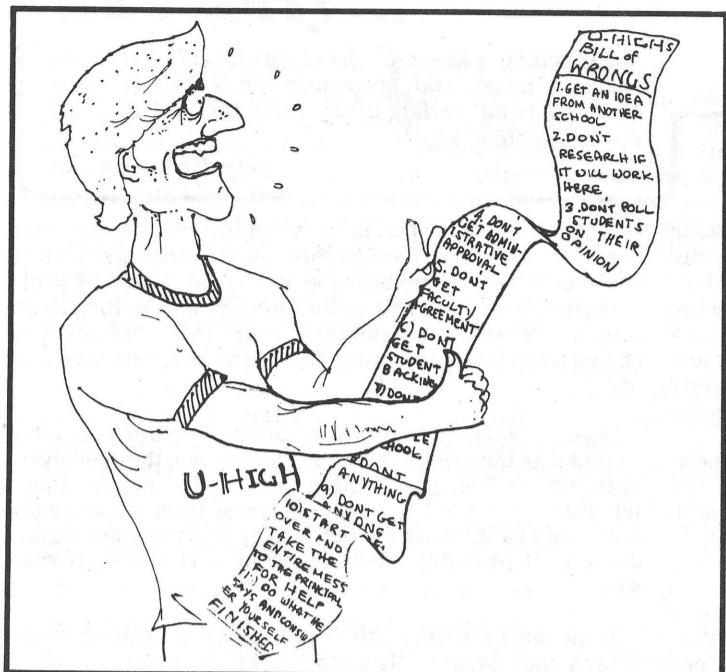 U-HIGHS
BILL of
WRONGS
1. GET AN IDEA
FROM ANOTHER
SCHOOL
2. DON'T
RESEARCH IF
IT WILL WORK
HERE
3. DONT POLL
STUDENTS
ON THEIR
OPINION
4. DONT
GET ADMIN-
ISTRATIVE
APPROVAL
5. DONT
GET
FACULTY
AGREEMENT
6) DONT
GET
STUDENT
BACKING
7) DONT
ANYTHING
9) DONT GET
10) START
OVER AND
TAKE THE
ENTIRE MESS
TO THE PRINCIPAL
FOR HELP
11) DO WHAT HE
SAYS AND CONSID
ER YOURSELF
FINISHED
U-HIGH